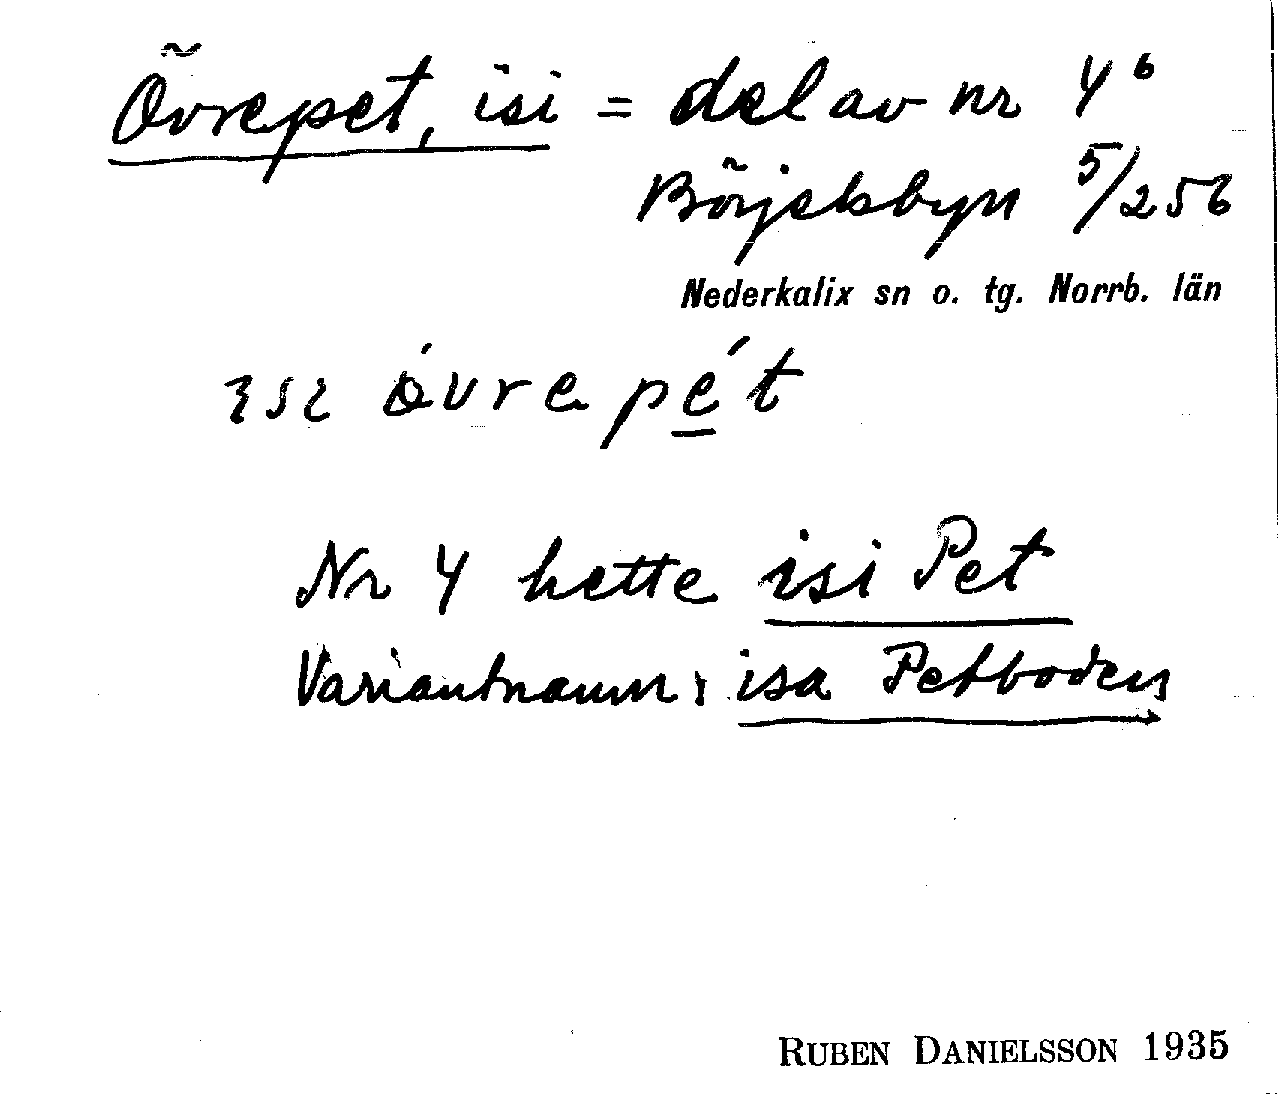 Övrepet, isi = del av nr 4⁶
Börjelsbyn 5/256
Nederkalix sn o. tg. Norrb. län
ɪsɪ övrepét
Nr 4 hette isi Pet
Variantnamn: isa Petboden
RUBEN DANIELSSON 1935